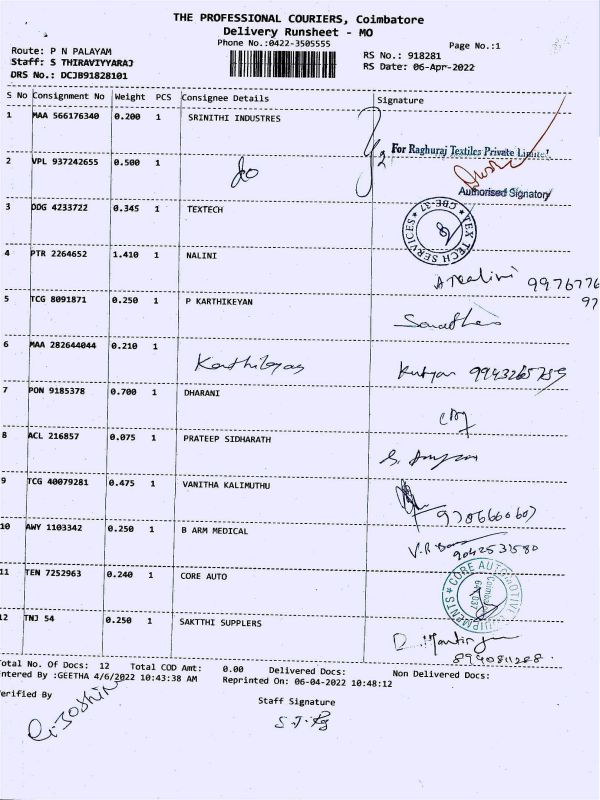 THE PROFESSIONAL COURIERS, Coimbatore
Delivery Runsheet - MO
Phone No.:0422-3505555
Page No.:1
Route: P N PALAYAM
Staff: S THIRAVIYYARAJ
DRS No.: DCJB91828101
RS No.: 918281
RS Date: 06-Apr-2022
S No Consignment No Weight PCS Consignee Details Signature
1 MAA 566176340 0.200 1 SRINITHI INDUSTRES
For Raghuraj Textiles Private Limited
Authorised Signatory
2 VPL 937242655 0.500 1 do
3 DDG 4233722 0.345 1 TEXTECH
TEX TECH SERVICES * CBE-37 *
4 PTR 2264652 1.410 1 NALINI
A Nalini 9976776
97
5 TCG 8091871 0.250 1 P KARTHIKEYAN
6 MAA 282644044 0.210 1 Karthikeyan
9943265759
7 PON 9185378 0.700 1 DHARANI
8 ACL 216857 0.075 1 PRATEEP SIDHARATH
9 TCG 40079281 0.475 1 VANITHA KALIMUTHU
10 AWY 1103342 0.250 1 B ARM MEDICAL
9042531580
11 TEN 7252963 0.240 1 CORE AUTO
CORE AUTOMOTIVE EQUIPMENTS *
12 TNJ 54 0.250 1 SAKTTHI SUPPLERS
8940811288
Total No. Of Docs: 12 Total COD Amt: 0.00 Delivered Docs: Non Delivered Docs:
ntered By :GEETHA 4/6/2022 10:43:38 AM Reprinted On: 06-04-2022 10:48:12
erified By
Staff Signature